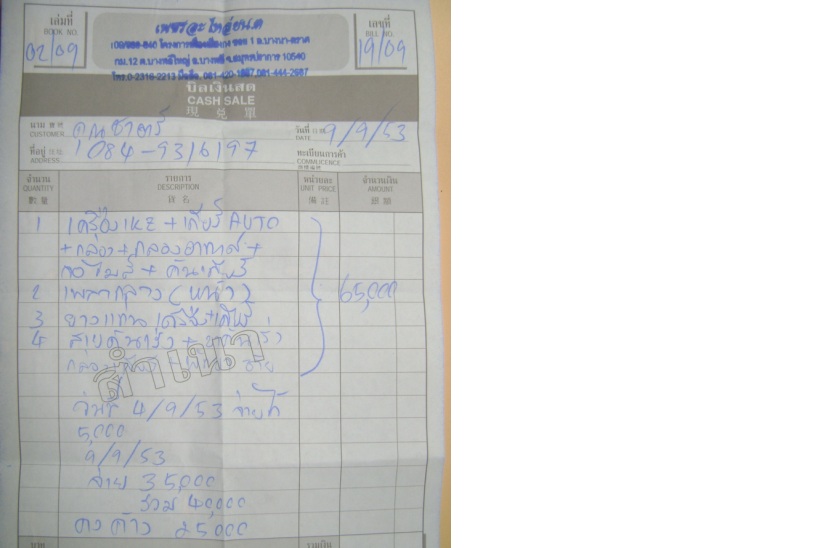 เล่มที่
BOOK NO.
02/09
เพชรอะไหล่ยนต์
เลขที่
BILL NO.
19/09
โครงการเมืองใหม่ ซอย 1 ถ.บางนา-ตราด
กม.12 ต.บางพลีใหญ่ อ.บางพลี จ.สมุทรปราการ 10540
โทร.0-2316-2213 มือถือ.
บิลเงินสด
CASH SALE
現兌單
นาม
CUSTOMER
คุณชาตรี
วันที่
DATE
9/9/53
ที่อยู่
ADDRESS
084-9316197
ทะเบียนการค้า
จำนวน
QUANTITY
數量
รายการ
DESCRIPTION
貨名
หน่วยละ
UNIT PRICE
จำนวนเงิน
AMOUNT
1 เครื่อง 1KZ + เกียร์ AUTO
+ กล่อง + กรองอากาศ +
+ คันเกียร์
2 เพลากลาง (หน้า) 65,000
3 ยางแท่นเครื่อง+เกียร์
4 สายคันเร่ง +
สำเนา
วันที่ 4/9/53
5,000
9/9/53
จ่าย 35,000
รวม 40,000
คงค้าง 25,000
บาท
รวมเงิน